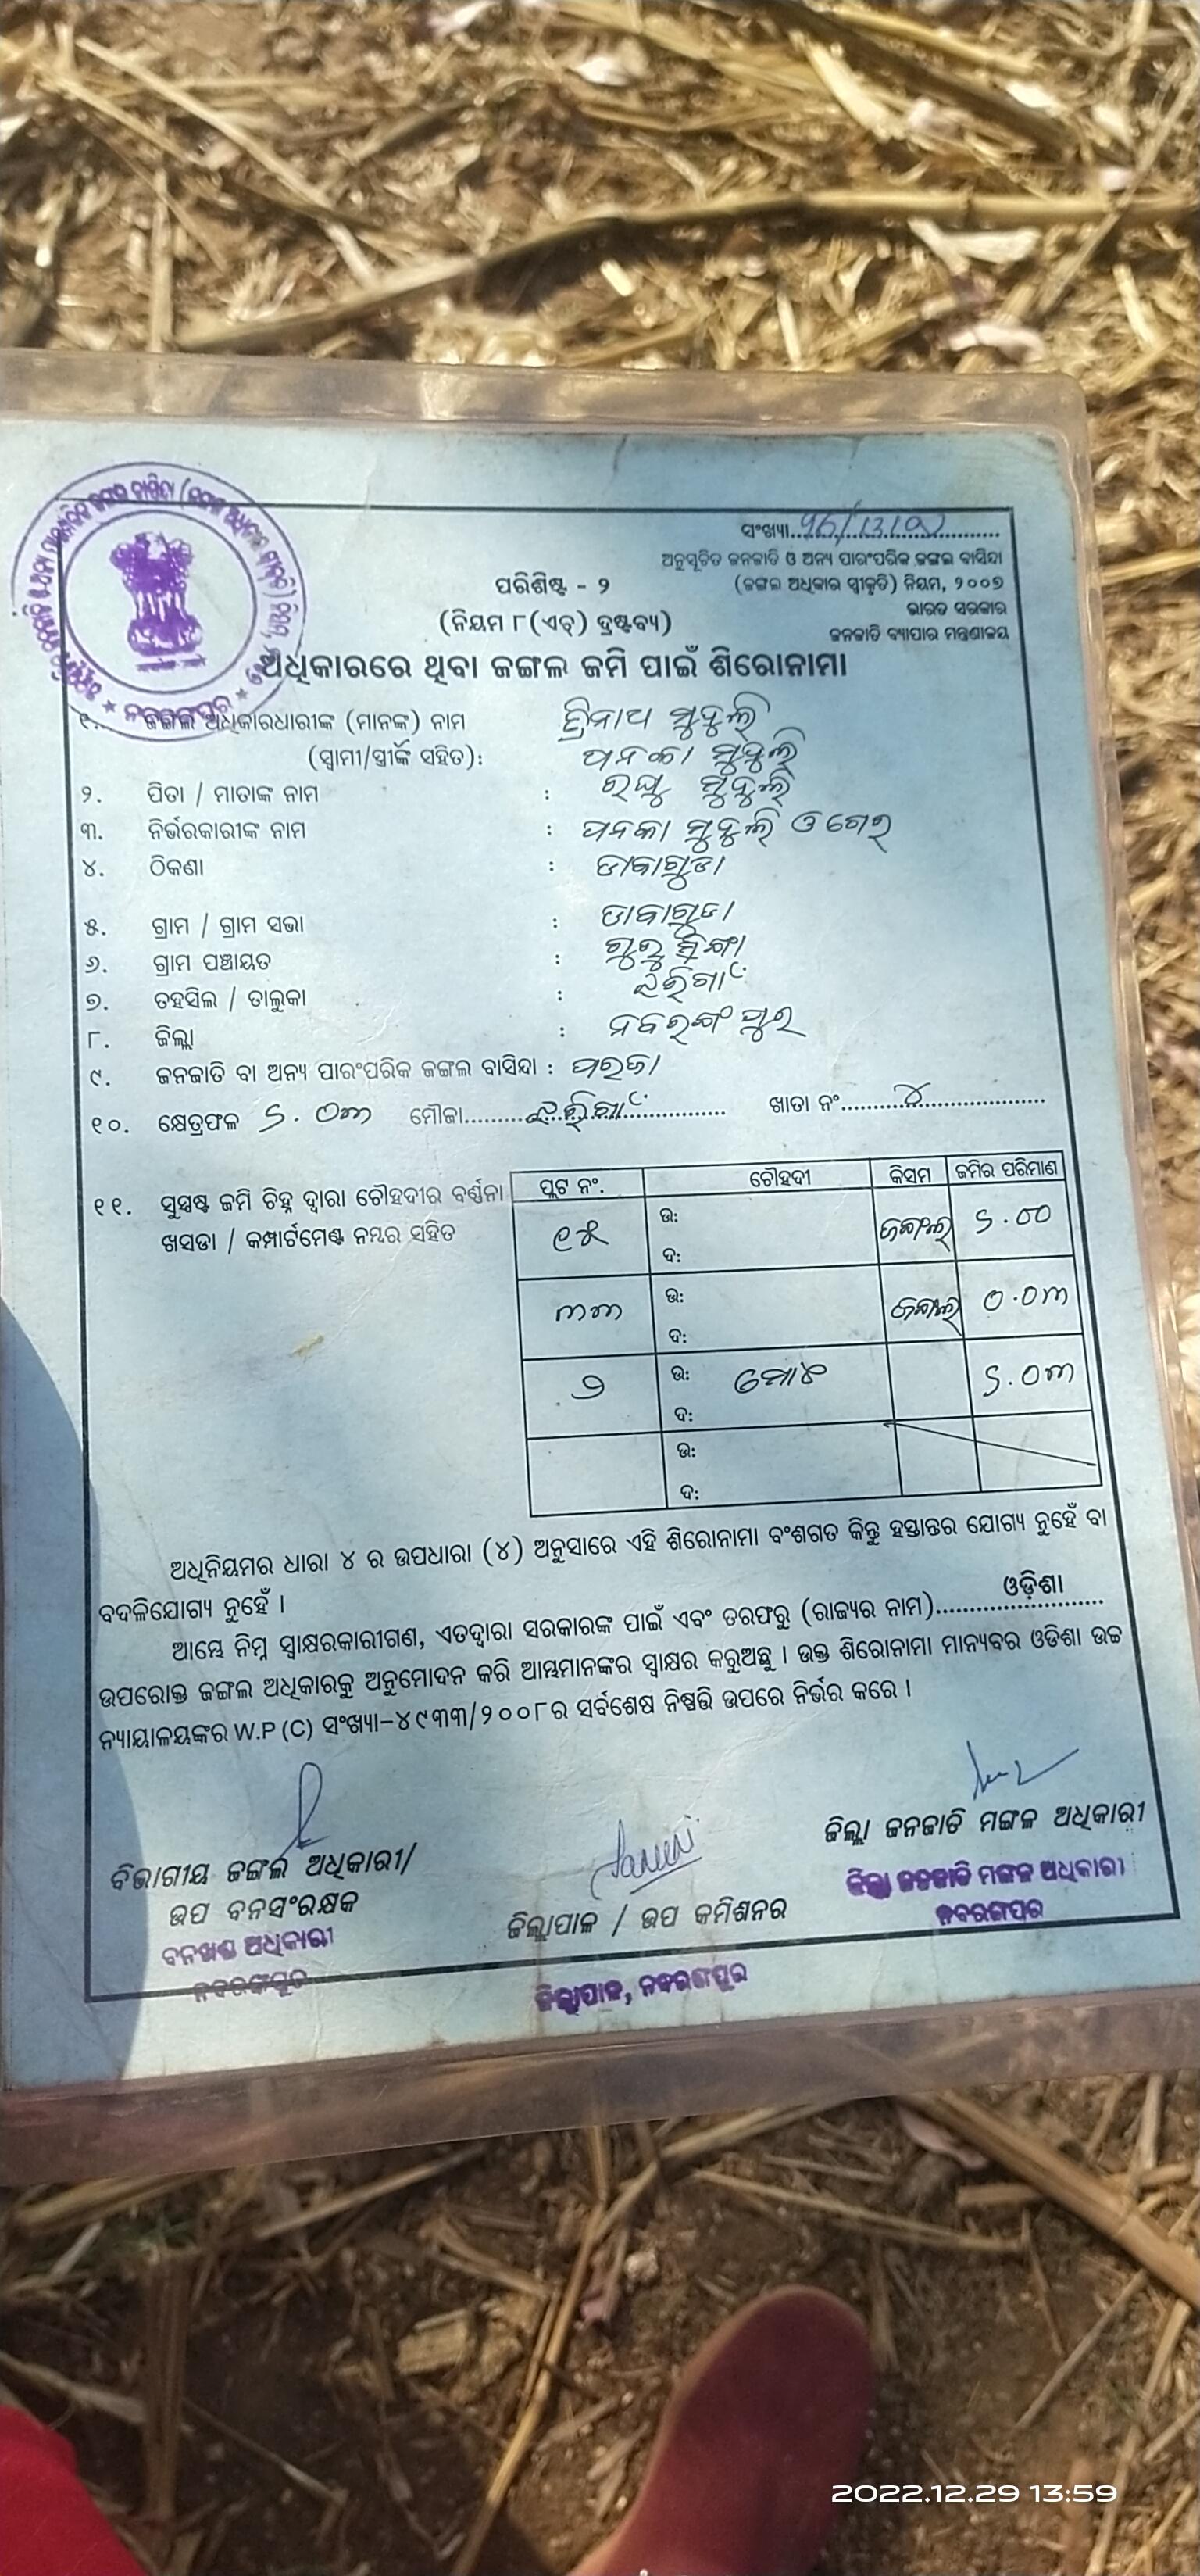 ସଂଖ୍ୟା
ଅନୁସୂଚିତ ଜନଜାତି ଓ ଅନ୍ୟ ପାରଂପରିକ ଜଙ୍ଗଲ ବାସିନ୍ଦା
(ଜଙ୍ଗଲ ଅଧିକାର ସ୍ୱୀକୃତି) ନିୟମ, ୨୦୦୭
ଭାରତ ସରକାର
ଜନଜାତି ବ୍ୟାପାର ମନ୍ତ୍ରଣାଳୟ
ପରିଶିଷ୍ଟ - ୨
(ନିୟମ ୮(ଏଚ୍) ଦ୍ରଷ୍ଟବ୍ୟ)
ଅଧିକାରରେ ଥିବା ଜଙ୍ଗଲ ଜମି ପାଇଁ ଶିରୋନାମା
୧. ଜଙ୍ଗଲ ଅଧିକାରଧାରୀଙ୍କ (ମାନଙ୍କ) ନାମ ତ୍ରିନାଥ ମୁଦୁଲି
(ସ୍ୱାମୀ/ସ୍ତ୍ରୀଙ୍କ ସହିତ): ମନକା ମୁଦୁଲି
୨. ପିତା / ମାତାଙ୍କ ନାମ : ରଘୁ ମୁଦୁଲି
୩. ନିର୍ଭରକାରୀଙ୍କ ନାମ : ମନକା ମୁଦୁଲି ଓ
୪. ଠିକଣା : ଡାବାଗୁଡା
୫. ଗ୍ରାମ / ଗ୍ରାମ ସଭା : ଡାବାଗୁଡା
୬. ଗ୍ରାମ ପଞ୍ଚାୟତ : ଗୁରୁସିଙ୍ଗା
୭. ତହସିଲ / ତାଲୁକା : ଝରିଗାଁ
୮. ଜିଲ୍ଲା : ନବରଙ୍ଗପୁର
୯. ଜନଜାତି ବା ଅନ୍ୟ ପାରଂପରିକ ଜଙ୍ଗଲ ବାସିନ୍ଦା : ପରଜା
୧୦. କ୍ଷେତ୍ରଫଳ ୧.୦୩ ମୌଜା ଝରିଗାଁ ଖାତା ନଂ ୪
୧୧. ସୁସ୍ପଷ୍ଟ ଜମି ଚିହ୍ନ ଦ୍ୱାରା ଚୌହଦୀର ବର୍ଣ୍ଣନା
ଖସଡା / କମ୍ପାର୍ଟମେଣ୍ଟ ନମ୍ବର ସହିତ
ପ୍ଲଟ ନଂ. ଚୌହଦୀ କିସମ ଜମିର ପରିମାଣ
୯୫ ଉ: ଜଙ୍ଗଲ ୧.୦୦
ଦ:
୩୩ ଉ: ଜଙ୍ଗଲ ୦.୦୩
ଦ:
୨ ଉ: ମୋଟ ୧.୦୩
ଦ:
ଉ:
ଦ:
ଅଧିନିୟମର ଧାରା ୪ ର ଉପଧାରା (୪) ଅନୁସାରେ ଏହି ଶିରୋନାମା ବଂଶଗତ କିନ୍ତୁ ହସ୍ତାନ୍ତର ଯୋଗ୍ୟ ନୁହେଁ ବା
ବଦଳିଯୋଗ୍ୟ ନୁହେଁ ।
ଆମ୍ଭେ ନିମ୍ନ ସ୍ୱାକ୍ଷରକାରୀଗଣ, ଏତଦ୍ଦ୍ୱାରା ସରକାରଙ୍କ ପାଇଁ ଏବଂ ତରଫରୁ (ରାଜ୍ୟର ନାମ) ଓଡ଼ିଶା
ଉପରୋକ୍ତ ଜଙ୍ଗଲ ଅଧିକାରକୁ ଅନୁମୋଦନ କରି ଆମ୍ଭମାନଙ୍କର ସ୍ୱାକ୍ଷର କରୁଅଛୁ । ଉକ୍ତ ଶିରୋନାମା ମାନ୍ୟବର ଓଡିଶା ଉଚ୍ଚ
ନ୍ୟାୟାଳୟଙ୍କର W.P (C) ସଂଖ୍ୟା-୪୯୩୩/୨୦୦୮ର ସର୍ବଶେଷ ନିଷ୍ପତ୍ତି ଉପରେ ନିର୍ଭର କରେ ।
ବିଭାଗୀୟ ଜଙ୍ଗଲ ଅଧିକାରୀ/
ଉପ ବନସଂରକ୍ଷକ
ବନଖଣ୍ଡ ଅଧିକାରୀ
ନବରଙ୍ଗପୁର
ଜିଲ୍ଲାପାଳ / ଉପ କମିଶନର
ଜିଲ୍ଲାପାଳ, ନବରଙ୍ଗପୁର
ଜିଲ୍ଲା ଜନଜାତି ମଙ୍ଗଳ ଅଧିକାରୀ
ଜିଲ୍ଲା ଜନଜାତି ମଙ୍ଗଳ ଅଧିକାରୀ
ନବରଙ୍ଗପୁର
2022.12.29 13:59